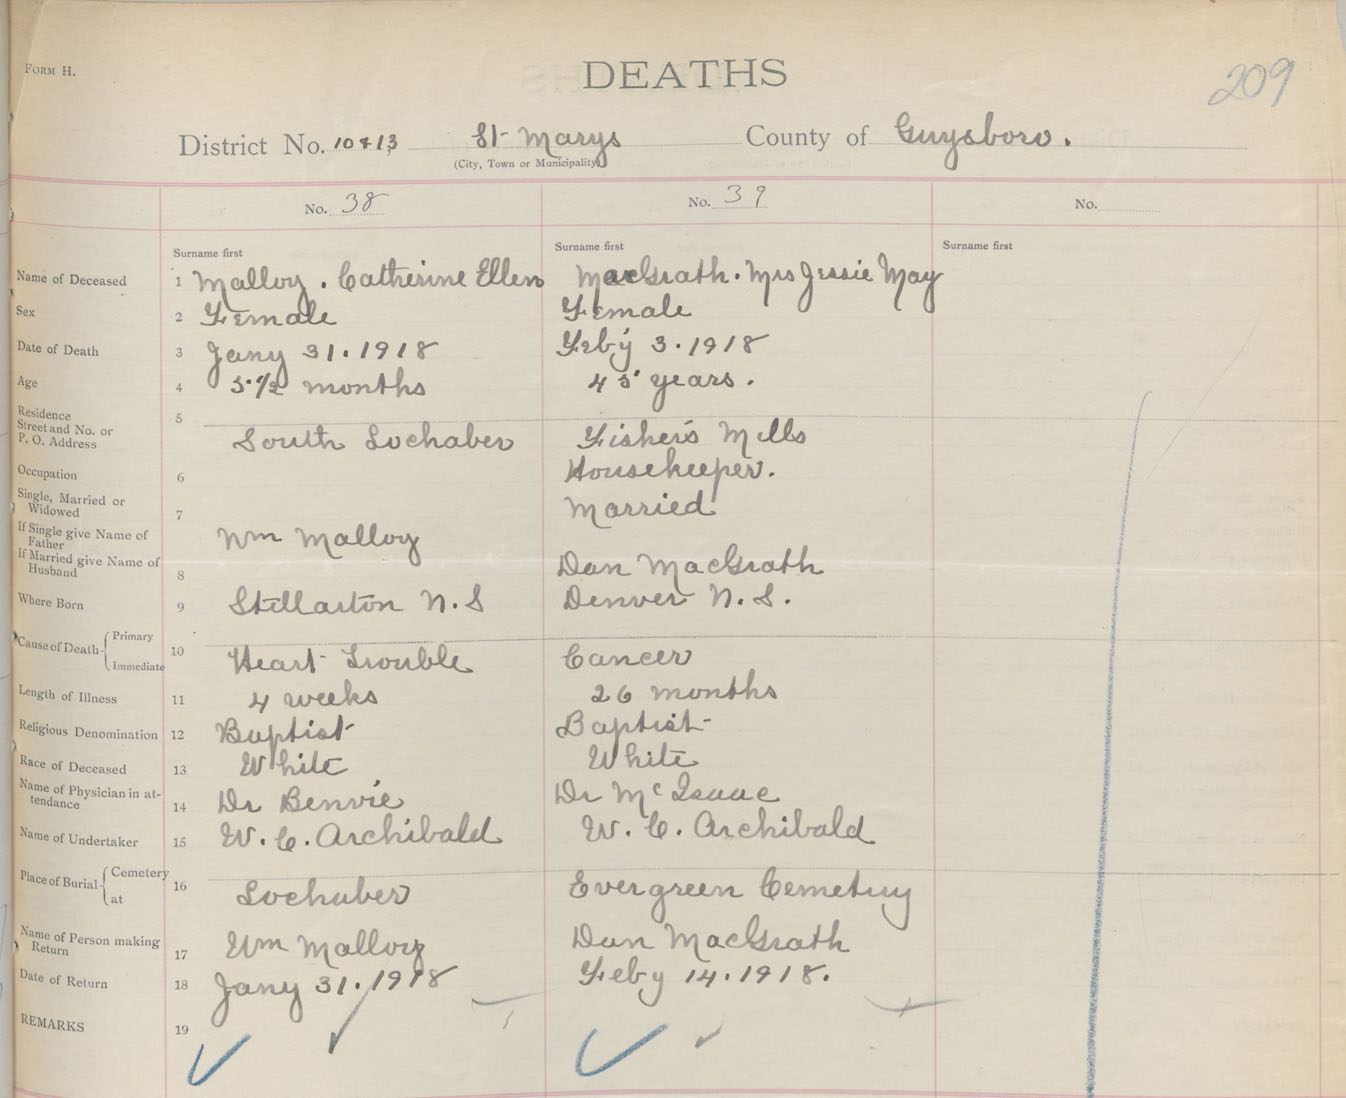 FORM H.
DEATHS
209
District No. 10 & 13 St Marys County of Guysboro.
(City, Town or Municipality)
No. 38 No. 39 No.
Surname first Surname first Surname first
Name of Deceased 1 Malloy. Catherine Ellen MacGrath. Mrs Jessie May
Sex 2 Female Female
Date of Death 3 Jany 31. 1918 Feb'y 3. 1918
Age 4 5 1/2 months 45 years.
Residence
Street and No. or
P. O. Address 5 South Lochaber Fisher's Mills
Occupation 6 Housekeeper.
Single, Married or
Widowed 7 Married
If Single give Name of
Father Wm Malloy
If Married give Name of
Husband 8 Dan MacGrath
Where Born 9 Stellarton N.S Denver N.S.
Cause of Death Primary
Immediate 10 Heart Trouble Cancer
Length of Illness 11 4 weeks 26 months
Religious Denomination 12 Baptist Baptist
Race of Deceased 13 White White
Name of Physician in at-
tendance 14 Dr Benvie Dr McIsaac
Name of Undertaker 15 W. C. Archibald W. C. Archibald
Place of Burial Cemetery
at 16 Lochaber Evergreen Cemetery
Name of Person making
Return 17 Wm Malloy Dan MacGrath
Date of Return 18 Jany 31. 1918 Feby 14. 1918.
REMARKS 19